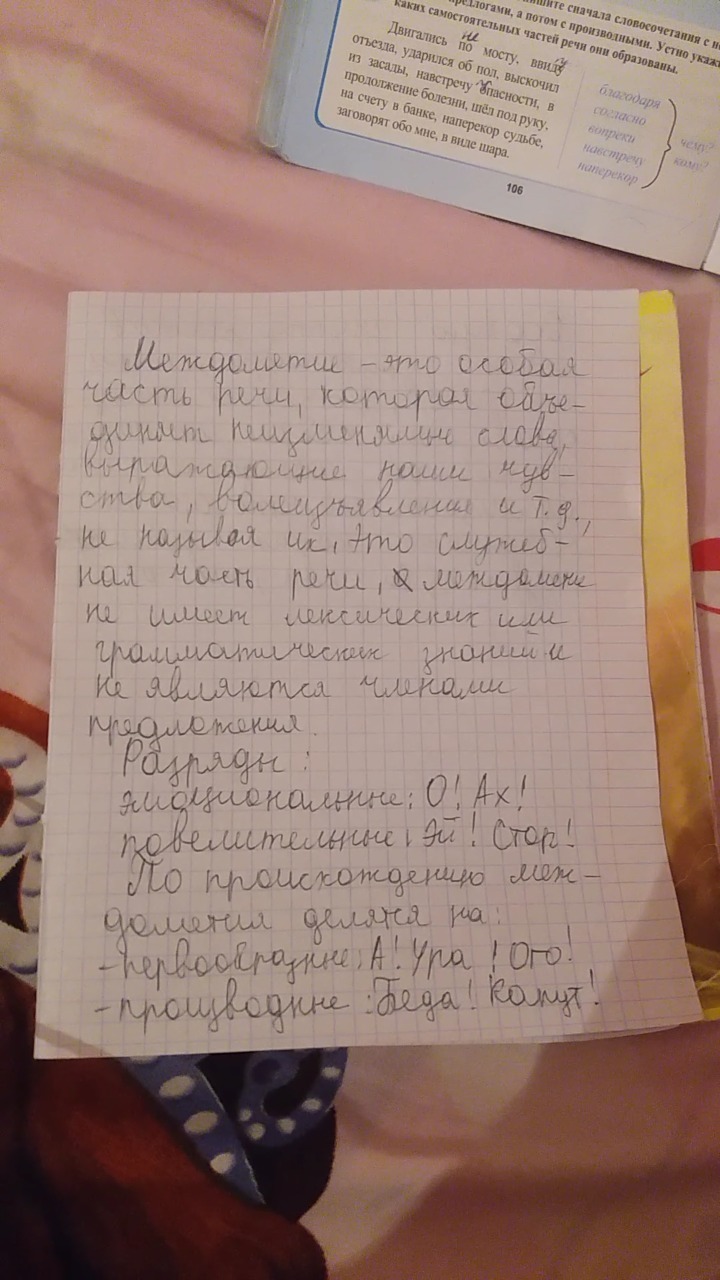 ишите сначала словосочетания с н
редлогами, а потом с производными. Устно укажи
каких самостоятельных частей речи они образованы.
Двигались по мосту, ввиду
отъезда, ударился об пол, выскочил
из засады, навстречу опасности, в
продолжение болезни, шёл под руку,
на счету в банке, наперекор судьбе,
заговорят обо мне, в виде шара.
благодаря
согласно
вопреки
навстречу
наперекор
чему?
кому?
106
Междометие - это особая
часть речи, которая объе-
диняет неизменяемые слова,
выражающие наши чув-
ства, волеизъявления и т.д.,
не называя их, это служеб-
ная часть речи, междомени
не имеет лексических или
грамматических знаний и
не являются членами
предложения.
Разряды:
эмоциональные: О! Ах!
повелительные: Эй! Стоп!
По происхождению меж-
дометия делятся на:
-первообразные: А! Ура! Ого!
-производные: Беда! Капут!